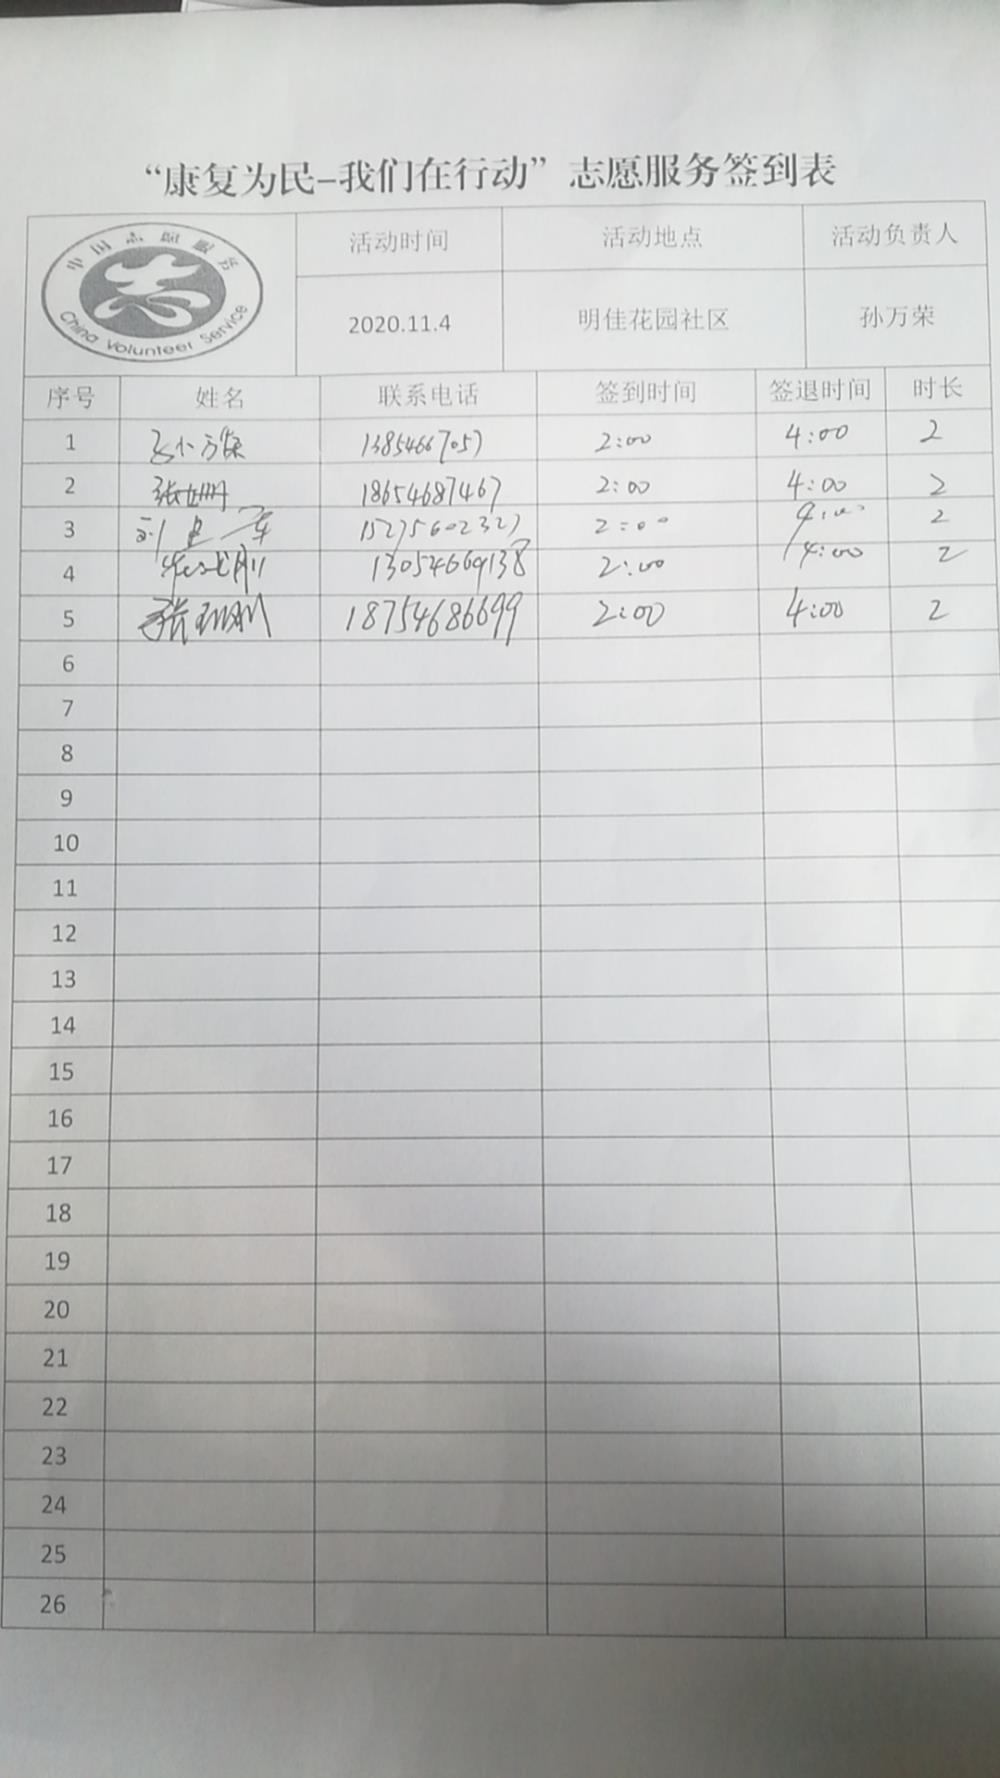 “康复为民-我们在行动”志愿服务签到表
中国志愿服务
China Volunteer Service
活动时间 活动地点 活动负责人
2020.11.4 明佳花园社区 孙万荣
序号 姓名 联系电话 签到时间 签退时间 时长
1 13854667057 2:00 4:00 2
2 18654687467 2:00 4:00 2
3 15275602327 2:00 4:00 2
4 13054669138 2:00 4:00 2
5 18754686699 2:00 4:00 2
6
7
8
9
10
11
12
13
14
15
16
17
18
19
20
21
22
23
24
25
26